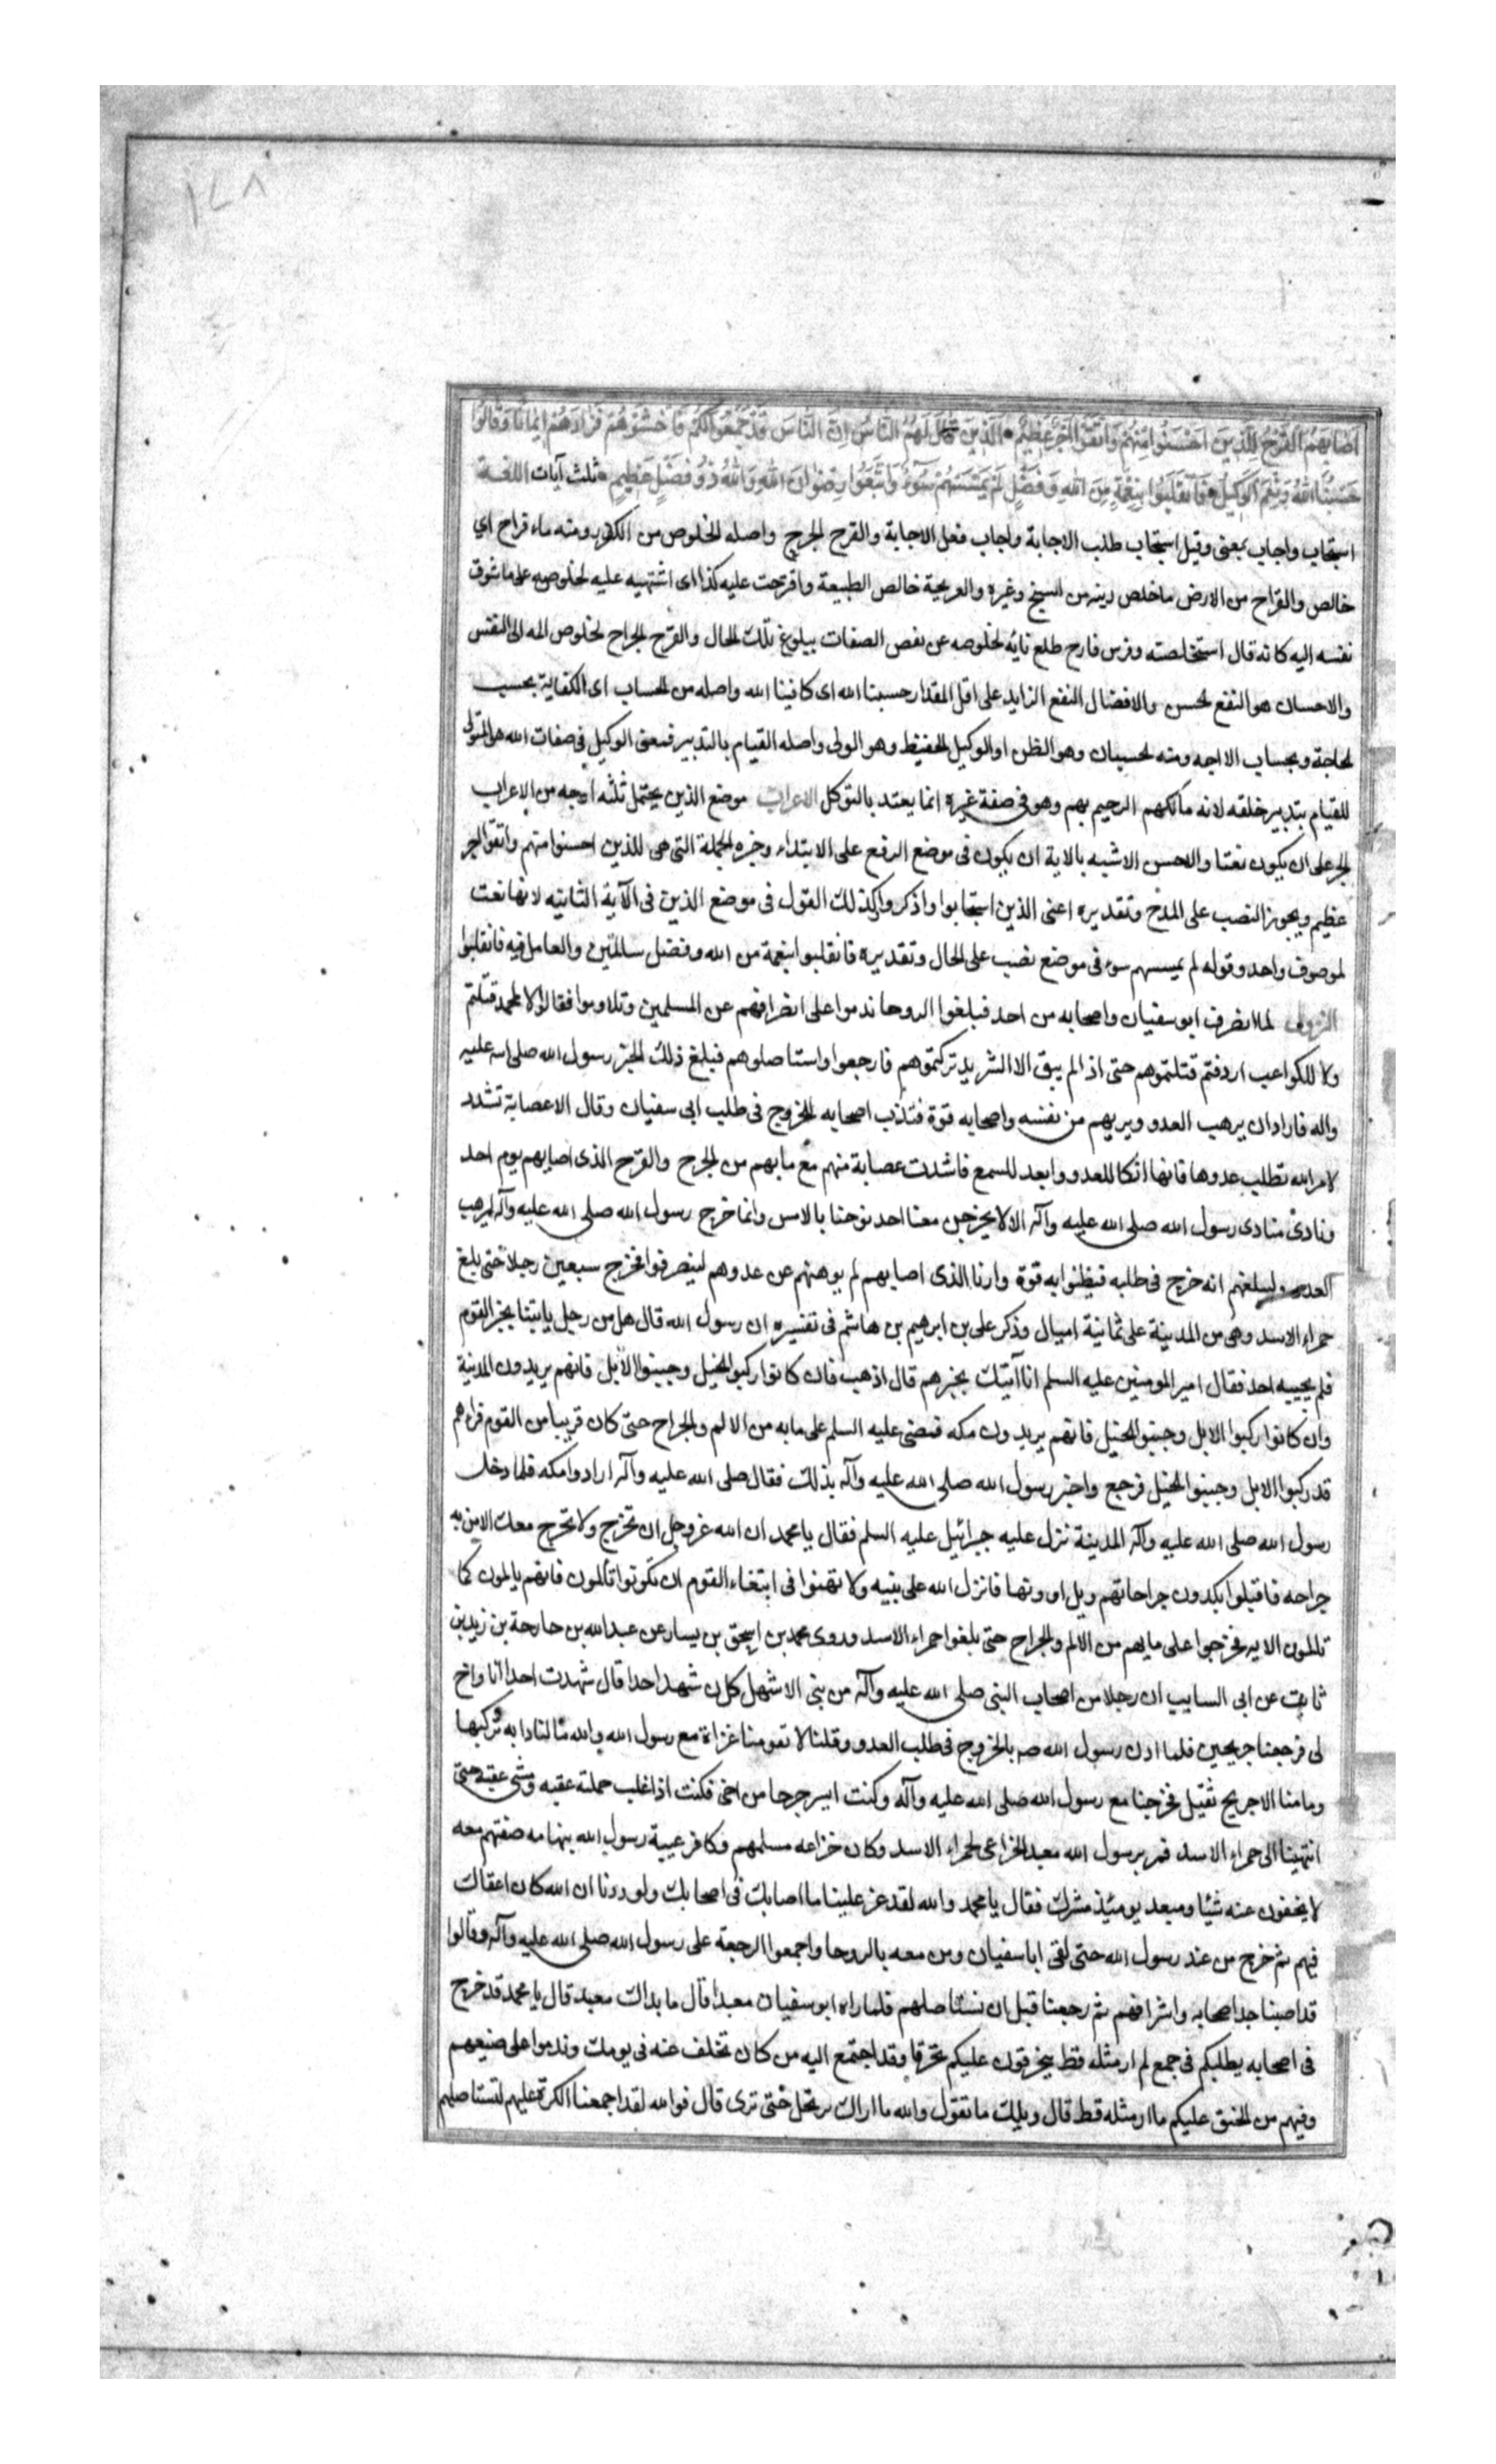 ١٤٨
اَصَابَهُمُ الْقَرْحُ لِلَّذِينَ اَحْسَنُوا مِنْهُمْ وَاتَّقَوْا اَجْرٌ عَظِيمٌ الَّذِينَ قَالَ لَهُمُ النَّاسُ اِنَّ النَّاسَ قَدْ جَمَعُوا لَكُمْ فَاخْشَوْهُمْ فَزَادَهُمْ اِيمَانًا وَقَالُوا
حَسْبُنَا اللهُ وَنِعْمَ الْوَكِيلُ فَانْقَلَبُوا بِنِعْمَةٍ مِنَ اللهِ وَفَضْلٍ لَمْ يَمْسَسْهُمْ سُوءٌ وَاتَّبَعُوا رِضْوَانَ اللهِ وَاللهُ ذُو فَضْلٍ عَظِيمٍ ثلث آيات اللغة
استجاب واجاب بمعنى وقيل استجاب طلب الاجابة واجاب فعل الاجابة والقرح الجرح واصله الخلوص من الكدر ومنه ماء قراح اي
خالص والقراح من الارض ما خلص طينه من السبخ وغيره والقريحة خالص الطبيعة واقترحت عليه كذا اى اشتهيته عليه لخلوصه على ما تتوق
نفسه اليه كانه قال استخلصته وفرس قارح طلع نابه لخلوصه عن نقص الصفات ببلوغ تلك الحال والقرح الجراح لخلوص المه الى النفس
والاحسان هو النفع الحسن والافضال النفع الزايد على اقل المقدار حسبنا الله اى كافينا الله واصله من الحساب اى الكفاية بحسب
الحاجة وبحساب الحاجة ومنه الحسبان وهو الظن والوكيل الحفيظ وهو الولى واصله القيام بالتدبير فمعنى الوكيل فى صفات الله هو المتولى
للقيام بتدبير خلقه لانه مالكهم الرحيم بهم وهو فى صفة غيره انما يعتد بالتوكل الاعراب موضع الذين يحتمل ثلثه اوجه من الاعراب
الجر على ان يكون نعتا والاحسن الاشبه بالاية ان يكون فى موضع الرفع على الابتداء وخبره الجملة التى هى للذين احسنوا منهم واتقوا اجر
عظيم ويجوز النصب على المدح وتقديره اعنى الذين استجابوا واذكر وكذلك القول فى موضع الذين فى الآية الثانيه لانها نعت
لموصوف واحد وقوله لم يمسسهم سوء فى موضع نصب على الحال وتقديره فانقلبوا بنعمة من الله وفضل سالمين والعامل فيه فانقلبوا
النزول لما انصرف ابو سفيان واصحابه من احد فبلغوا الروحا ندموا على انصرافهم عن المسلمين وتلاوموا فقالوا لا محمد قتلتم
ولا الكواعب اردفتم قتلتموهم حتى اذا لم يبق الا الشريد تركتموهم فارجعوا واستاصلوهم فبلغ ذلك الخبر رسول الله صلى الله عليه
واله فاراد ان يرهب العدو ويريهم من نفسه واصحابه قوة فندب اصحابه للخروج فى طلب ابى سفيان وقال الا عصابة تشدد
لامر الله تطلب عدوها فانها انكا للعدو وابعد للسمع فاشدت عصابة منهم مع ما بهم من الجرح والقرح الذى اصابهم يوم احد
ونادى منادى رسول الله صلى الله عليه وآله الا لا يخرجن معنا احد الا من حضر يومنا بالامس وانما خرج رسول الله صلى الله عليه وآله ليرهب
العدو وليبلغهم انه خرج فى طلبه فيظنوا به قوة وان الذى اصابهم لم يوهنهم عن عدوهم لينصرفوا فخرج سبعين رجلا حتى بلغ
حمراء الاسد وهى من المدينة على ثمانية اميال وذكر على بن ابرهيم بن هاشم فى تفسيره ان رسول الله قال هل من رجل ياتينا بخبر القوم
فلم يجيبه احد فقال امير المومنين عليه السلم انا آتيك بخبرهم قال اذهب فان كانوا ركبوا الخيل وجنبوا الابل فانهم يريدون المدينة
وان كانوا ركبوا الابل وجنبوا الخيل فانهم يريدون مكه فمضى عليه السلم على ما به من الالم والجراح حتى كان قريبا من القوم فراهم
قد ركبوا الابل وجنبوا الخيل فرجع واخبر رسول الله صلى الله عليه وآله بذلك فقال صلى الله عليه وآله ارادوا مكه فلما دخل
رسول الله صلى الله عليه وآله المدينة نزل عليه جبرائيل عليه السلم فقال يا محمد ان الله عز وجل ان تخرج ولا تخرج معك الا من به
جراحه فاقبلوا يكمدون جراحاتهم ويداوونها فانزل الله على نبيه ولا تهنوا فى ابتغاء القوم ان تكونوا تالمون فانهم يالمون كما
تالمون الايه فخرجوا على ما بهم من الالم والجراح حتى بلغوا حمراء الاسد وروى محمد بن اسحق بن يسار عن عبد الله بن خارجة بن زيد بن
ثابت عن ابى السايب ان رجلا من اصحاب النبى صلى الله عليه وآله من بنى الاشهل كان شهد احدا قال شهدت احدا انا واخ
لى فرجعنا جريحين فلما اذن رسول الله صه بالخروج فى طلب العدو وقلنا لا تفوتنا غزاة مع رسول الله والله ما لنا دابه نركبها
وما منا الا جريح ثقيل فخرجنا مع رسول الله صلى الله عليه وآله وكنت ايسر جرحا من اخى فكنت اذا غلب حملته عقبه ومشى عقبه حتى
انتهينا الى حمراء الاسد فمر برسول الله معبد الخزاعى بحمراء الاسد وكان خزاعه مسلمهم وكافر عيبة رسول الله بتهامه صفقتهم معه
لا يخفون عنه شيئا ومعبد يومئذ مشرك فقال يا محمد والله لقد عز علينا ما اصابك فى اصحابك ولوددنا ان الله كان اعفاك
فيهم ثم خرج من عند رسول الله حتى لقى ابا سفيان ومن معه بالروحا واجمعوا الرجعة على رسول الله صلى الله عليه وآله وقالوا
قد اصبنا جد اصحابه واشرافهم ثم رجعنا قبل ان نستاصلهم فلما راه ابو سفيان معبدا قال ما بداك معبد قال يا محمد قد خرج
فى اصحابه يطلبكم فى جمع لم ار مثله قط يتخرقون عليكم تخرقا وقد اجتمع اليه من كان تخلف عنه فى يومك وندموا على صنيعهم
وفيهم من الحنق عليكم ما ار مثله قط قال ويلك ما تقول والله ما اراك ترتحل حتى ترى قال فوالله لقد اجمعنا الكرة عليهم لنستاصلهم